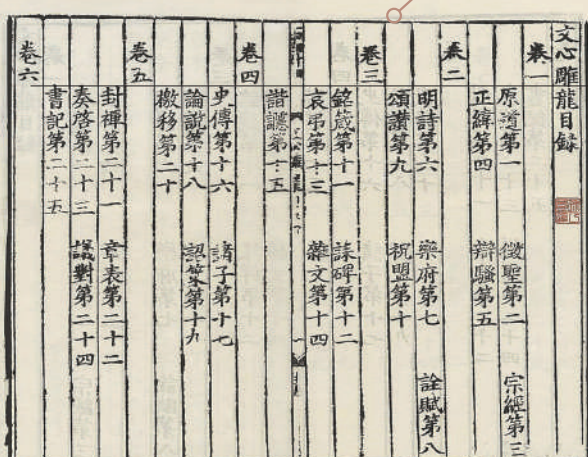 文心雕龍目錄
卷一
原道第一 徵聖第二 宗經第三
正緯第四 辯騷第五
卷二
明詩第六 樂府第七 詮賦第八
頌讚第九 祝盟第十
卷三
銘箴第十一 誄碑第十二
哀吊第十三 雜文第十四
諧讔第十五
卷四
史傳第十六 諸子第十七
論說第十八 詔策第十九
檄移第二十
卷五
封禪第二十一 章表第二十二
奏啓第二十三 議對第二十四
書記第二十五
卷六